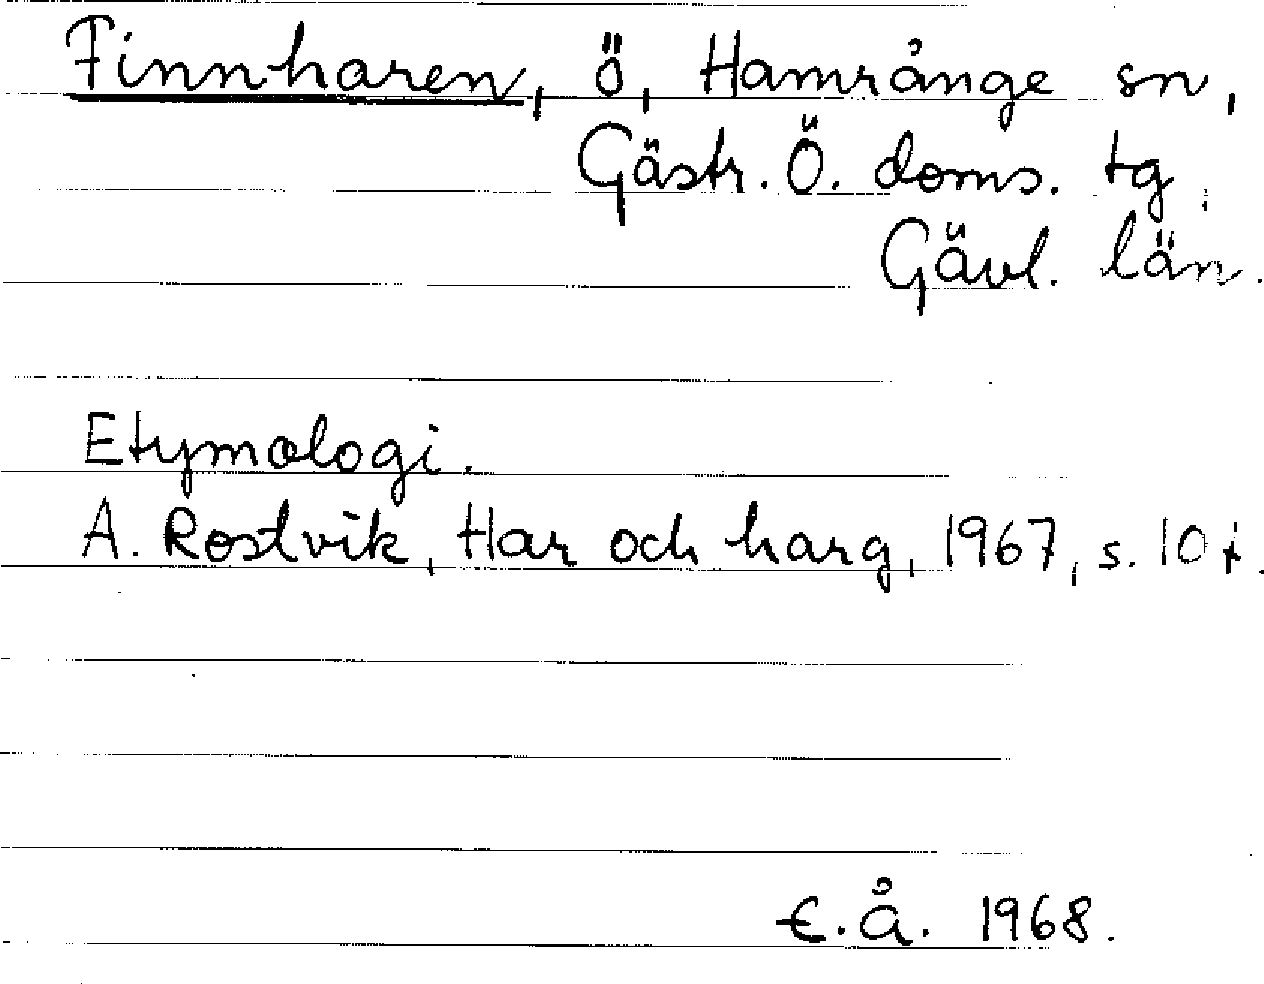 Finnharen, ö, Hamrånge sn,
Gästr. Ö. doms. tg,
Gävl. län.
Etymologi.
A. Rostvik, Har och harg, 1967, s. 10 f.
E.Å. 1968.